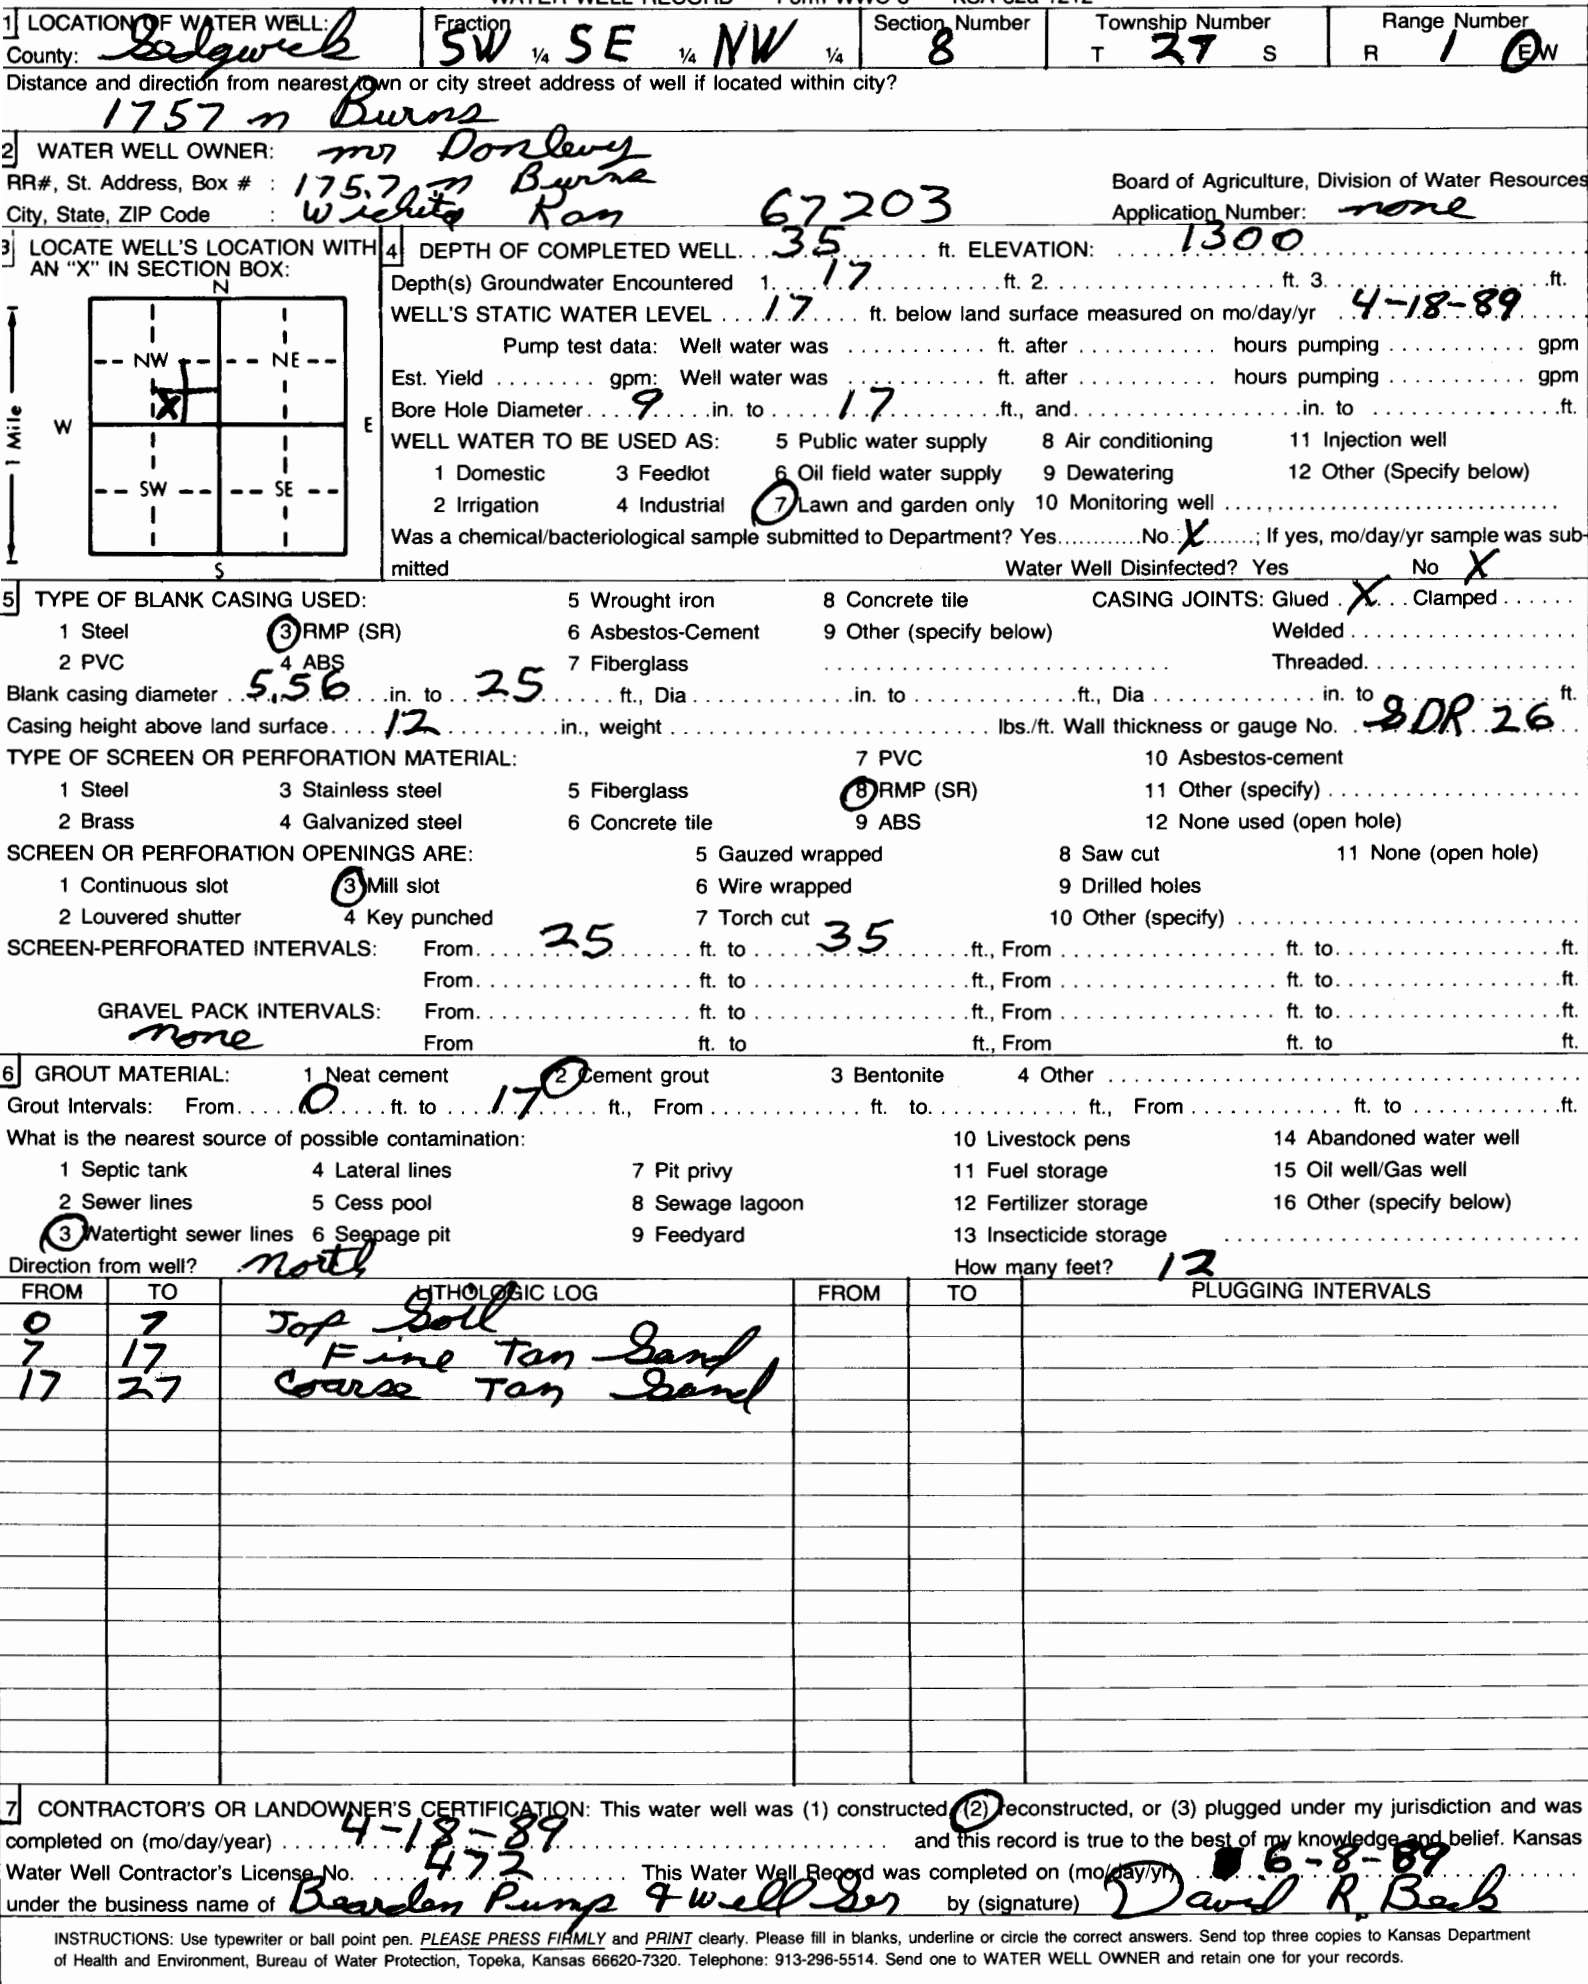 1 LOCATION OF WATER WELL: Fraction Section Number Township Number Range Number
County: Sedgwick SW ¼ SE ¼ NW ¼ 8 T 27 S R 1 E/W
Distance and direction from nearest town or city street address of well if located within city?
1757 n Burns
2 WATER WELL OWNER: mr Donlevy
RR#, St. Address, Box # : 1757 n Burns Board of Agriculture, Division of Water Resources
City, State, ZIP Code : Wichita Kan 67203 Application Number: none
3 LOCATE WELL'S LOCATION WITH AN "X" IN SECTION BOX:
N
NW NE
X
W E
SW SE
S
1 Mile
4 DEPTH OF COMPLETED WELL. . . 35 . . . ft. ELEVATION: . . . 1300 . . .
Depth(s) Groundwater Encountered 1. . . 17 . . . ft. 2. . . . ft. 3. . . . ft.
WELL'S STATIC WATER LEVEL . . . 17 . . . ft. below land surface measured on mo/day/yr . . 4-18-89 . . .
Pump test data: Well water was . . . . ft. after . . . . hours pumping . . . . gpm
Est. Yield . . . . gpm: Well water was . . . . ft. after . . . . hours pumping . . . . gpm
Bore Hole Diameter. . . 9 . . . in. to . . . 17 . . . ft., and. . . . in. to . . . . ft.
WELL WATER TO BE USED AS: 5 Public water supply 8 Air conditioning 11 Injection well
1 Domestic 3 Feedlot 6 Oil field water supply 9 Dewatering 12 Other (Specify below)
2 Irrigation 4 Industrial 7 Lawn and garden only 10 Monitoring well . . . .
Was a chemical/bacteriological sample submitted to Department? Yes. . . .No. . X . . .; If yes, mo/day/yr sample was sub-
mitted Water Well Disinfected? Yes No X
5 TYPE OF BLANK CASING USED: 5 Wrought iron 8 Concrete tile CASING JOINTS: Glued . X . . . Clamped . . . .
1 Steel 3 RMP (SR) 6 Asbestos-Cement 9 Other (specify below) Welded . . . .
2 PVC 4 ABS 7 Fiberglass . . . . Threaded. . . .
Blank casing diameter . . 5.56 . . . in. to . . 25 . . . ft., Dia . . . . in. to . . . . ft., Dia . . . . in. to . . . . ft.
Casing height above land surface. . . . 12 . . . . in., weight . . . . lbs./ft. Wall thickness or gauge No. . . SDR 26 . .
TYPE OF SCREEN OR PERFORATION MATERIAL: 7 PVC 10 Asbestos-cement
1 Steel 3 Stainless steel 5 Fiberglass 8 RMP (SR) 11 Other (specify) . . . .
2 Brass 4 Galvanized steel 6 Concrete tile 9 ABS 12 None used (open hole)
SCREEN OR PERFORATION OPENINGS ARE: 5 Gauzed wrapped 8 Saw cut 11 None (open hole)
1 Continuous slot 3 Mill slot 6 Wire wrapped 9 Drilled holes
2 Louvered shutter 4 Key punched 7 Torch cut 10 Other (specify) . . . .
SCREEN-PERFORATED INTERVALS: From. . . 25 . . . ft. to . . . 35 . . . ft., From . . . . ft. to. . . . ft.
From. . . . ft. to . . . . ft., From . . . . ft. to. . . . ft.
GRAVEL PACK INTERVALS: From. . . . ft. to . . . . ft., From . . . . ft. to. . . . ft.
none From ft. to ft., From ft. to ft.
6 GROUT MATERIAL: 1 Neat cement 2 Cement grout 3 Bentonite 4 Other . . . .
Grout Intervals: From. . . 0 . . . ft. to . . . 17 . . . ft., From . . . . ft. to. . . . ft., From . . . . ft. to . . . . ft.
What is the nearest source of possible contamination: 10 Livestock pens 14 Abandoned water well
1 Septic tank 4 Lateral lines 7 Pit privy 11 Fuel storage 15 Oil well/Gas well
2 Sewer lines 5 Cess pool 8 Sewage lagoon 12 Fertilizer storage 16 Other (specify below)
3 Watertight sewer lines 6 Seepage pit 9 Feedyard 13 Insecticide storage . . . .
Direction from well? North How many feet? 12
FROM TO LITHOLOGIC LOG FROM TO PLUGGING INTERVALS
0 7 Top Soil
7 17 Fine Tan Sand
17 27 Coarse Tan Sand
7 CONTRACTOR'S OR LANDOWNER'S CERTIFICATION: This water well was (1) constructed, (2) reconstructed, or (3) plugged under my jurisdiction and was
completed on (mo/day/year) . . . 4-18-89 . . . and this record is true to the best of my knowledge and belief. Kansas
Water Well Contractor's License No. . . . 472 . . . This Water Well Record was completed on (mo/day/yr) . . 6-8-89 . . .
under the business name of Bearden Pump & Well Ser by (signature) David R. Beck
INSTRUCTIONS: Use typewriter or ball point pen. PLEASE PRESS FIRMLY and PRINT clearly. Please fill in blanks, underline or circle the correct answers. Send top three copies to Kansas Department
of Health and Environment, Bureau of Water Protection, Topeka, Kansas 66620-7320. Telephone: 913-296-5514. Send one to WATER WELL OWNER and retain one for your records.